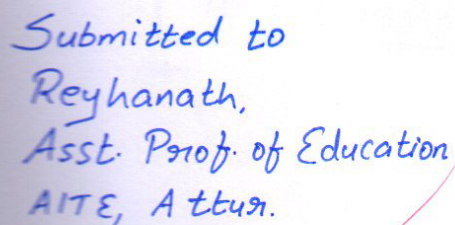 Submitted to
Reyhanath,
Asst. Prof. of Education
AITE, Attur.